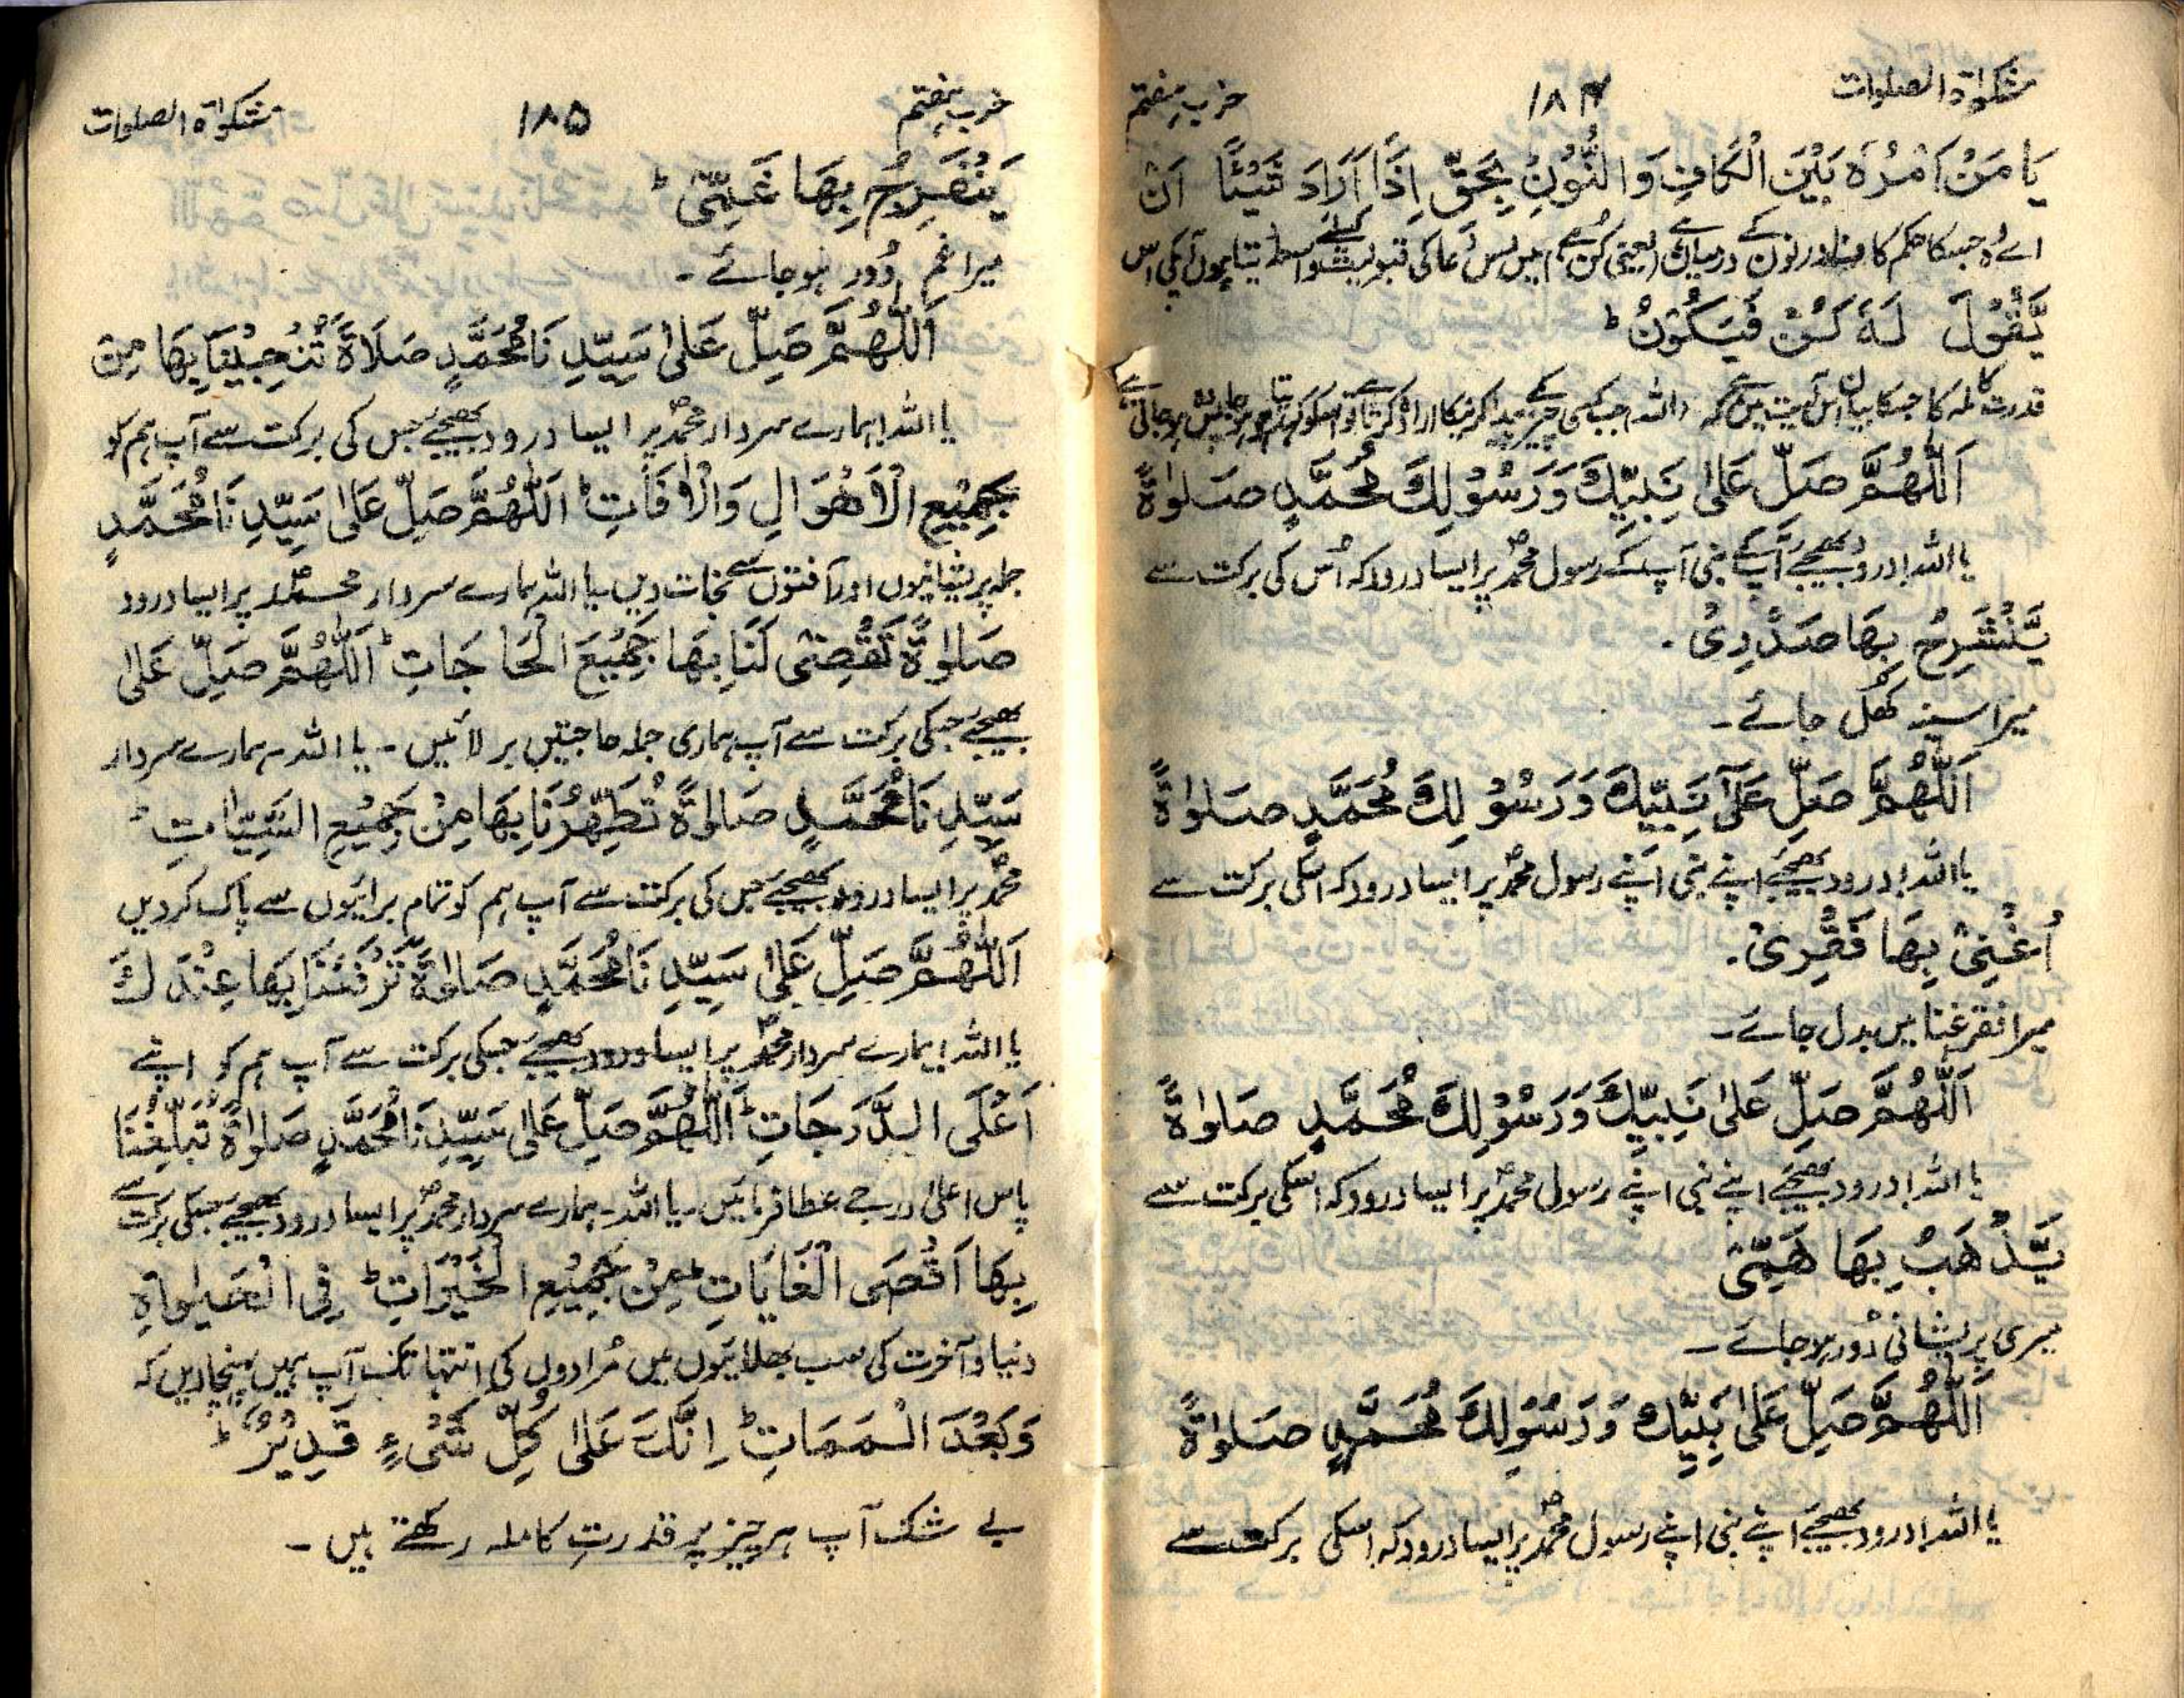 مشکوٰۃ الصلوات ۱۸۴ حزب ہفتم
يَا مَنْ اَمْرُهٗ بَيْنَ الْكَافِ وَالنُّوْنِ بِحَقِّ اِذَا اَرَادَ شَيْئًا اَنْ
اے وہ جسکا حکم کاف اور نون کے درمیان ہے (یعنی کن ہے) میں اس دعا کی قبولیت کیلئے واسطہ دیتا ہوں آپکی اس
يَّقُوْلَ لَهٗ كُنْ فَيَكُوْنُ ؕ
قدرت کاملہ کا جسکا بیان اس آیت میں ہے کہ اللہ جب کسی چیز کے پیدا کرنیکا ارادہ کرتا ہے تو اسکو کہتا ہے ہو جا پس ہو جاتی ہے
اَللّٰهُمَّ صَلِّ عَلٰى نَبِيِّكَ وَرَسُوْلِكَ مُحَمَّدٍ صَلٰوةً
یا اللہ! درود بھیجئے آپکے نبی آپکے رسول محمدؐ پر ایسا درود کہ اُس کی برکت سے
يَّنْشَرِحُ بِهَا صَدْرِىْ .
میرا سینہ کُھل جائے۔
اَللّٰهُمَّ صَلِّ عَلٰٓى نَبِيِّكَ وَرَسُوْلِكَ مُحَمَّدٍ صَلٰوةً
یا اللہ! درود بھیجئے اپنے نبی اپنے رسول محمدؐ پر ایسا درود کہ اسکی برکت سے
اُغْنِىْ بِهَا فَقْرِىْ .
میرا فقر غنا میں بدل جائے۔
اَللّٰهُمَّ صَلِّ عَلٰى نَبِيِّكَ وَرَسُوْلِكَ مُحَمَّدٍ صَلٰوةً
یا اللہ! درود بھیجئے اپنے نبی اپنے رسول محمدؐ پر ایسا درود کہ اسکی برکت سے
يَّذْهَبُ بِهَا هَمِّىْ
میری پریشانی دُور ہو جائے۔
اَللّٰهُمَّ صَلِّ عَلٰى نَبِيِّكَ وَرَسُوْلِكَ مُحَمَّدٍ صَلٰوةً
یا اللہ! درود بھیجئے اپنے نبی اپنے رسول محمدؐ پر ایسا درود کہ اسکی برکت سے
حزب ہفتم ۱۸۵ مشکوٰۃ الصلوات
يَنْفَرِجُ بِهَا غَمِّىْ ؕ
میرا غم دُور ہو جائے۔
اَللّٰهُمَّ صَلِّ عَلٰى سَيِّدِنَا مُحَمَّدٍ صَلَاةً تُنْجِيْنَا بِهَا مِنْ
یا اللہ! ہمارے سردار محمدؐ پر ایسا درود بھیجئے جس کی برکت سے آپ ہم کو
جَمِيْعِ الْاَهْوَالِ وَالْاٰفَاتِ ؕ اَللّٰهُمَّ صَلِّ عَلٰى سَيِّدِنَا مُحَمَّدٍ
جملہ پریشانیوں اور آفتوں سے نجات دیں یا اللہ ہمارے سردار محمدؐ پر ایسا درود
صَلٰوةً تَقْضِىْ لَنَا بِهَا جَمِيْعَ الْحَاجَاتِ ؕ اَللّٰهُمَّ صَلِّ عَلٰى
بھیجئے جسکی برکت سے آپ ہماری جملہ حاجتیں بر لائیں۔ یا اللہ۔ ہمارے سردار
سَيِّدِنَا مُحَمَّدٍ صَلٰوةً تُطَهِّرُنَا بِهَا مِنْ جَمِيْعِ السَّيِّاٰتِ ؕ
محمدؐ پر ایسا درود بھیجئے جس کی برکت سے آپ ہم کو تمام برائیوں سے پاک کردیں
اَللّٰهُمَّ صَلِّ عَلٰى سَيِّدِنَا مُحَمَّدٍ صَلٰوةً تَرْفَعُنَا بِهَا عِنْدَكَ
یا اللہ! ہمارے سردار محمدؐ پر ایسا درود بھیجئے جسکی برکت سے آپ ہم کو اپنے
اَعْلَى الدَّرَجَاتِ ؕ اَللّٰهُمَّ صَلِّ عَلٰى سَيِّدِنَا مُحَمَّدٍ صَلٰوةً تُبَلِّغُنَا
پاس اعلیٰ درجے عطا فرمائیں۔ یا اللہ۔ ہمارے سردار محمدؐ پر ایسا درود بھیجئے جسکی برکت سے
بِهَا اَقْصَى الْغَايَاتِ مِنْ جَمِيْعِ الْخَيْرَاتِ ؕ فِى الْحَيٰوةِ
دنیا و آخرت کی سب بھلائیوں میں مُرادوں کی انتہا تک آپ ہمیں پہنچادیں کہ
وَبَعْدَ الْمَمَاتِ ؕ اِنَّكَ عَلٰى كُلِّ شَىْءٍ قَدِيْرٌ ؕ
بے شک آپ ہر چیز پر قدرتِ کاملہ رکھتے ہیں۔